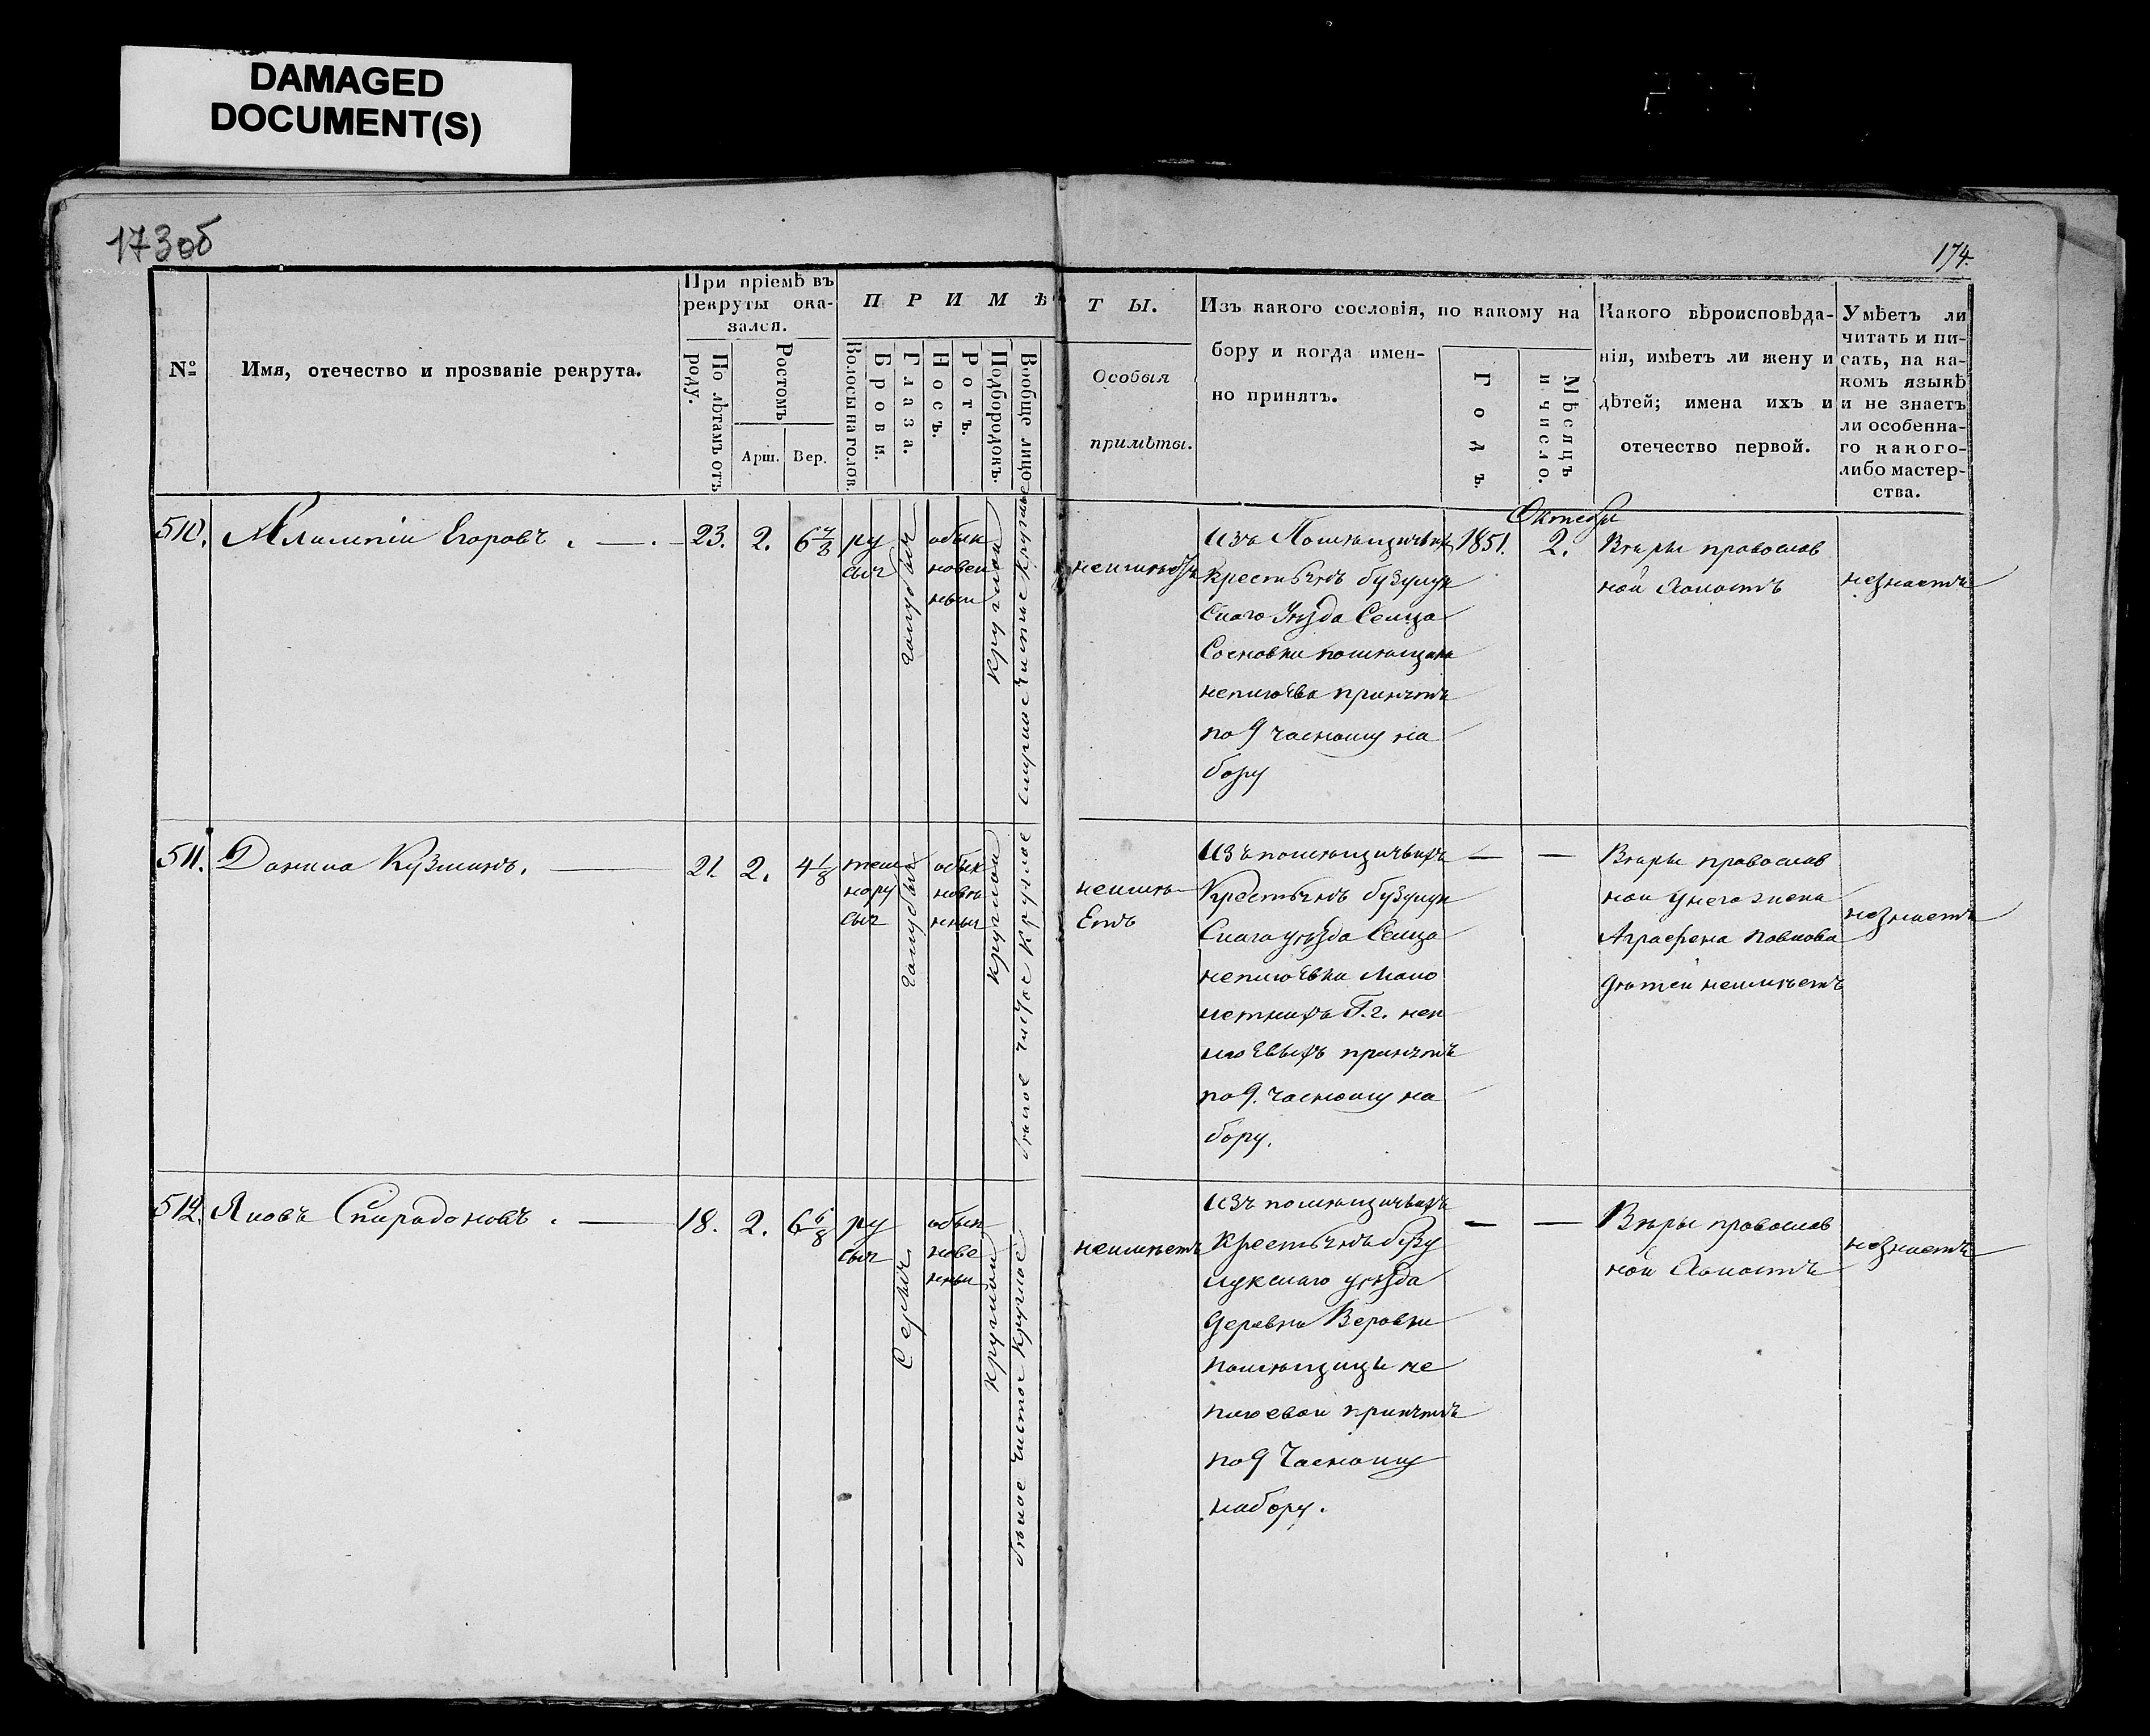 DAMAGED
DOCUMENT(S)
173об
174.
№
Имя, отечество и прозваніе рекрута.
При пріемѣ въ
рекруты ока-
зался.
По лѣтамъ отъ
роду.
Ростомъ
Арш.
Вер.
ПРИМѢ
Волосы на голов.
Брови.
Глаза.
Носъ.
Ротъ.
Подбородокъ.
Вообще лицо
ТЫ.
Особыя
примѣты.
Изъ какого сословія, по какому на
бору и когда имен-
но принятъ.
Годъ.
Мѣсяцъ
и число.
Какого вѣроисповѣда-
нія, имѣетъ ли жену и
дѣтей; имена ихъ и
отечество первой.
Умѣетъ ли
читать и пи-
сать, на ка-
комъ языкѣ
и не знаетъ
ли особенна-
го какого-
либо мастер-
ства.
510.
Алимпій Егоровъ.
23.
2.
6 7/8
ру
сыя
голубыя
обык
новен
ный
круглой
чистое круглое
неимѣетъ
Изъ Помѣщичьихъ
крестьянъ бузулук
скаго Уѣзда Сельца
Сосновки помѣщика
неплюева принятъ
по 9 часному на
бору
1851.
Октября
2.
Вѣры православ
ной Холостъ
незнаетъ
511.
Данила Кузминъ.
21.
2.
4 1/8
темно
ру
сыя
голубыя
обык
новен
ный
круглой
бѣлое чистое круглое
неимѣ
Етъ
Изъ помѣщичьихъ
Крестьянъ бузулук
Скаго уѣзда Сельца
неплюевки Мало
летнихъ Г.г. неп
люевыхъ принятъ
по 9. часному на
бору.
—
—
Вѣры православ
ной унего жена
Аграфена Павлова
дѣтей неимѣетъ
незнаетъ
512.
Яковъ Спирадоновъ.
18.
2.
6 6/8
ру
сыя
Серыя
обык
нове
нный
круглой
бѣлое чистое круглое
неимѣетъ
Изъ помѣщичьихъ
Крестьянъ бузу
лукскаго уѣзда
деревни Веровки
помѣщицы не
плюевой принятъ
по 9 Часному
набору.
—
—
Вѣры православ
ной Холостъ
незнаетъ